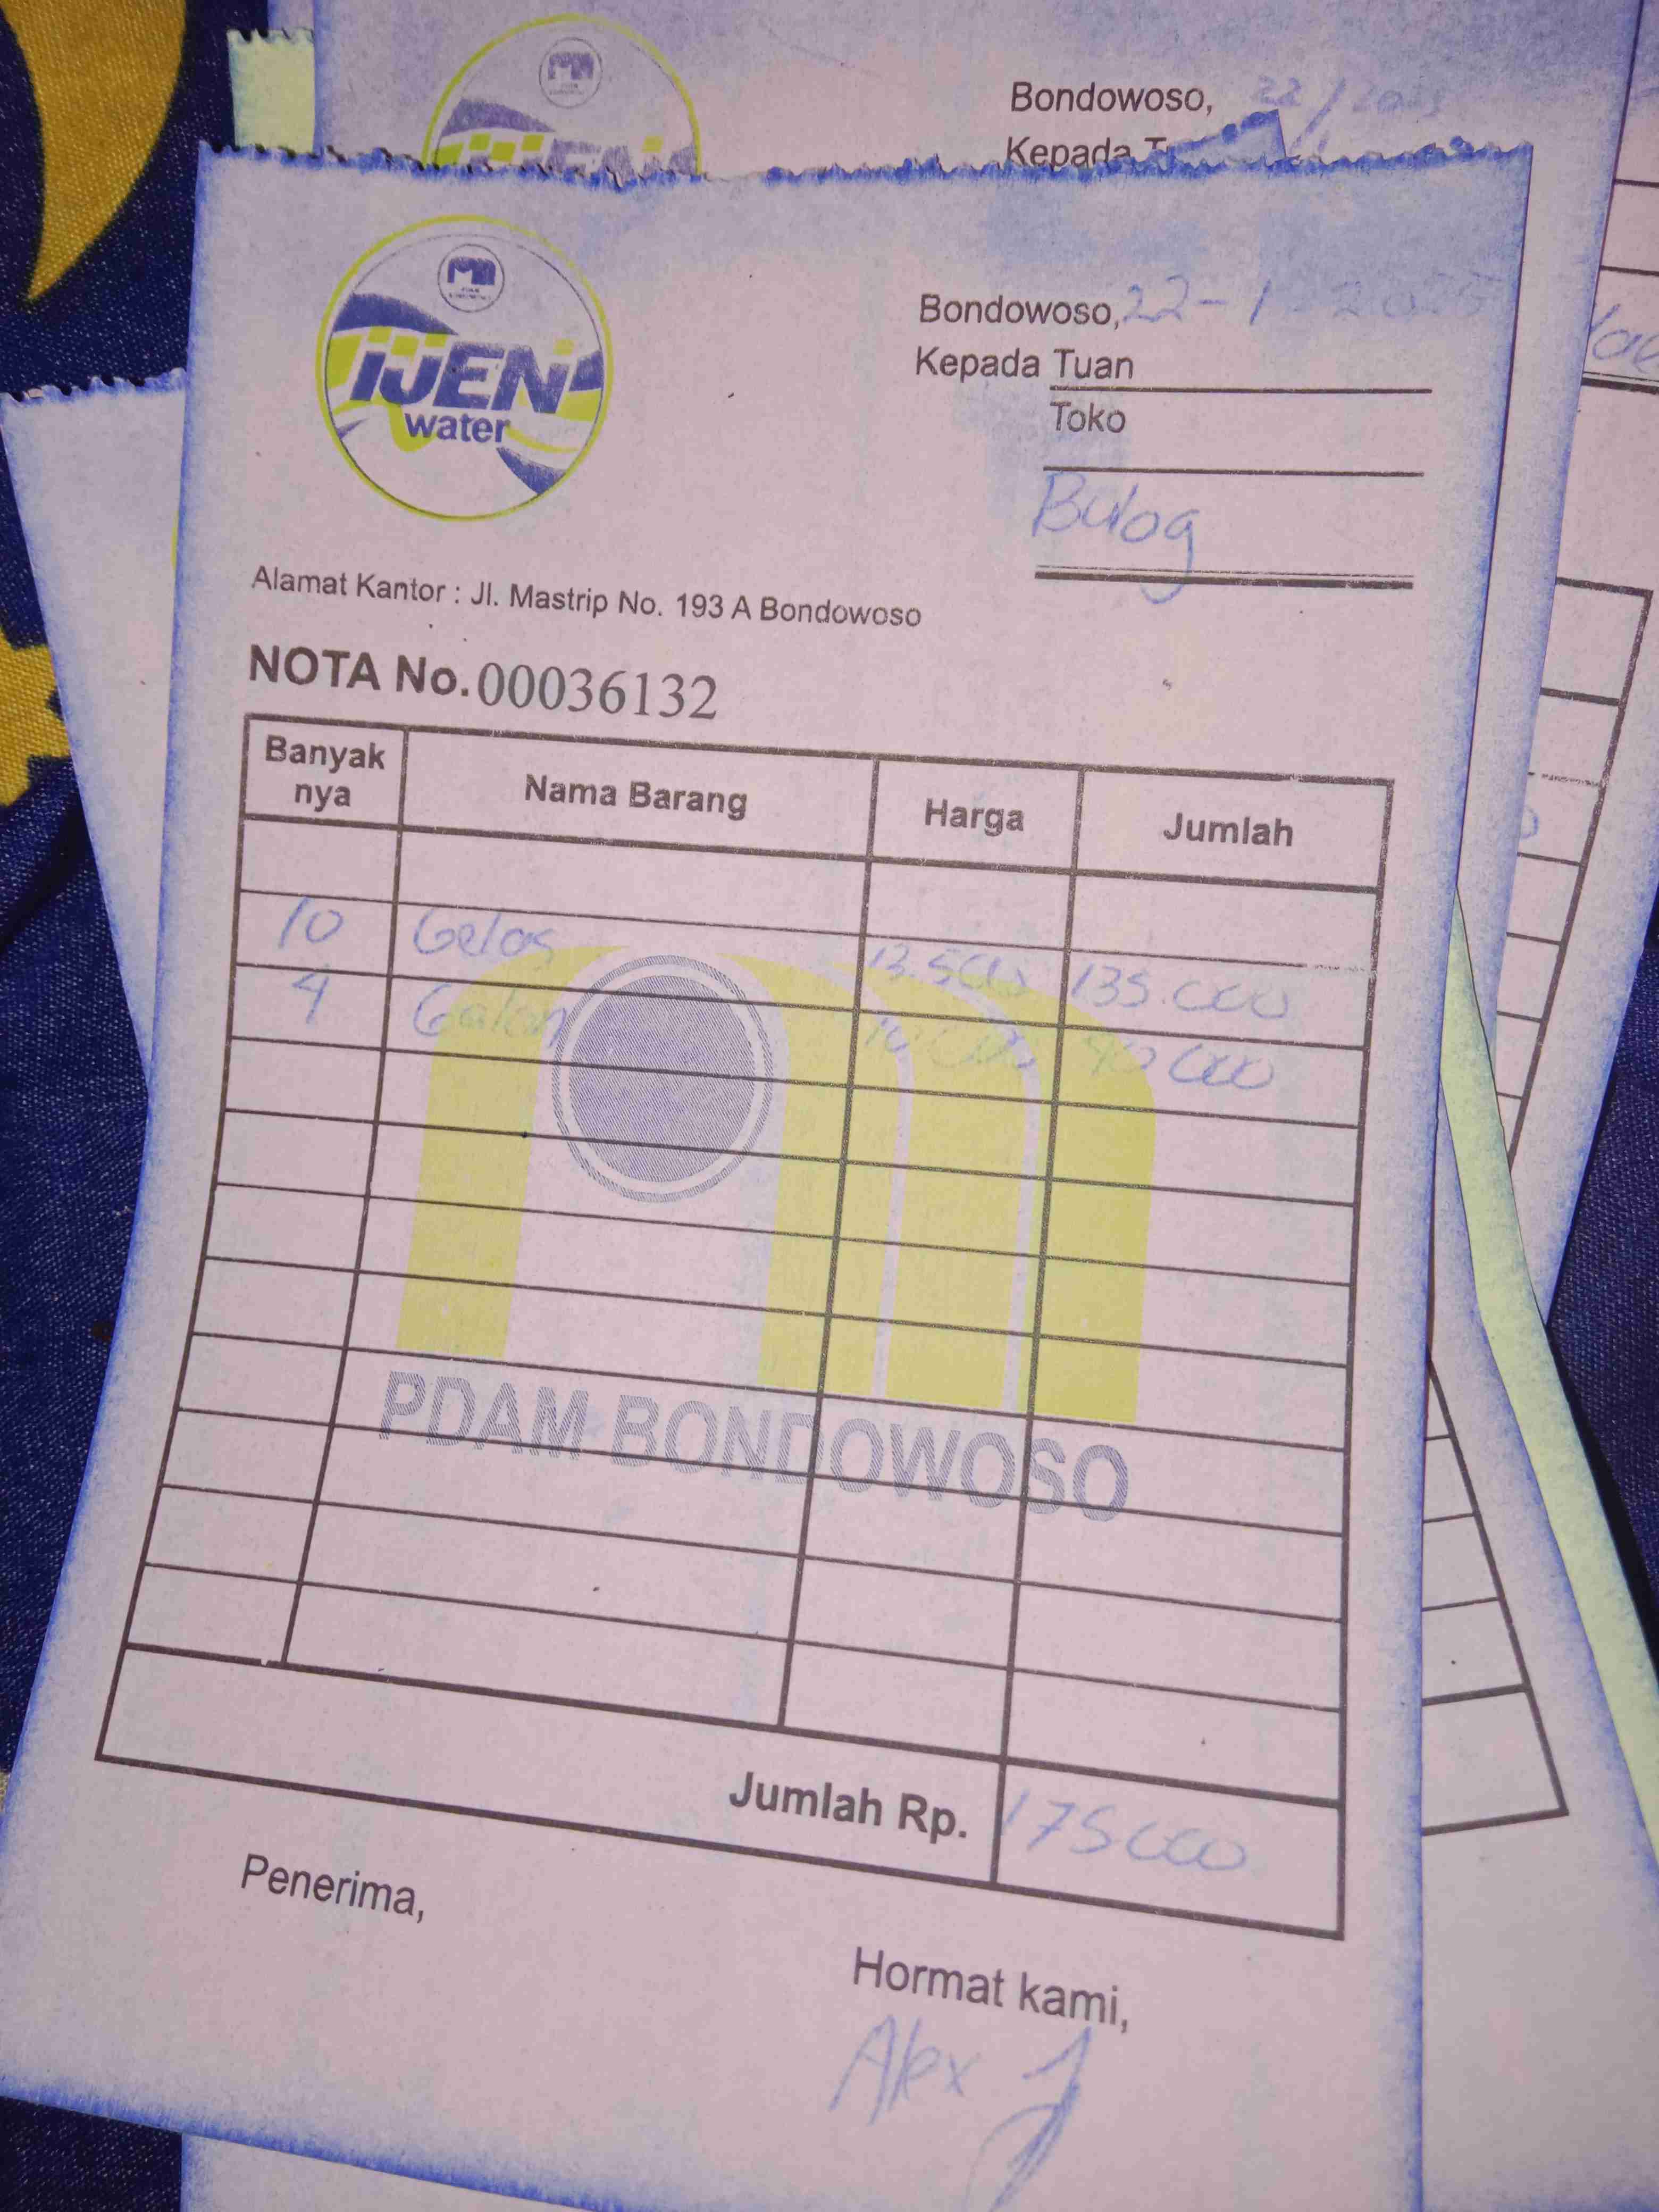 Bondowoso, 22/
Kepada
IJEN
water
Bondowoso, 22-1-2025
Kepada Tuan
Toko
Bulog
Alamat Kantor : Jl. Mastrip No. 193 A Bondowoso
NOTA No. 00036132
Banyak nya Nama Barang Harga Jumlah
10 Gelas 13.500 135.000
4 Galon 10 000 40 000
PDAM BONDOWOSO
Jumlah Rp. 175000
Penerima,
Hormat kami,
Alex